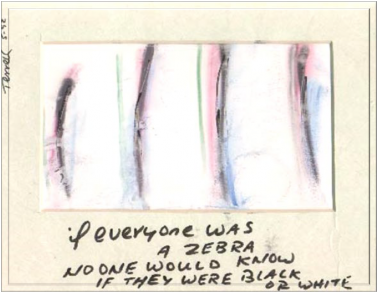 if everyone was
A ZEBRA
NO ONE WOULD KNOW
IF THEY WERE BLACK
OR WHITE